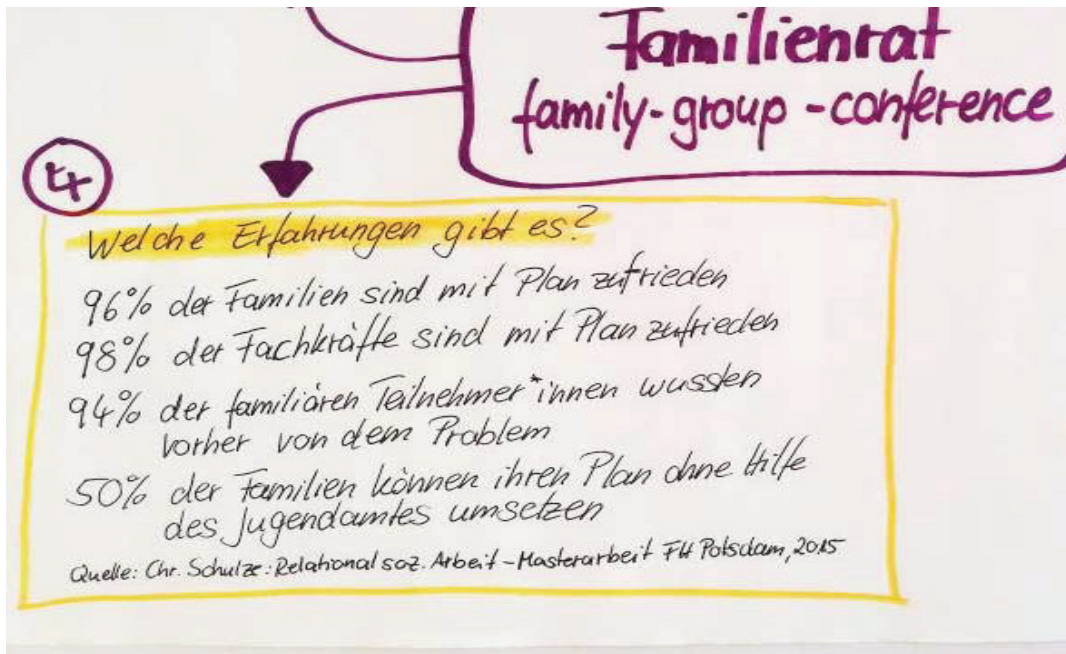 Familienrat
family-group-conference
4
Welche Erfahrungen gibt es?
96% der Familien sind mit Plan zufrieden
98% der Fachkräfte sind mit Plan zufrieden
94% der familiären Teilnehmer*innen wussten
vorher von dem Problem
50% der Familien können ihren Plan ohne Hilfe
des Jugendamtes umsetzen
Quelle: Chr. Schulze: Relational soz. Arbeit - Masterarbeit FH Potsdam, 2015